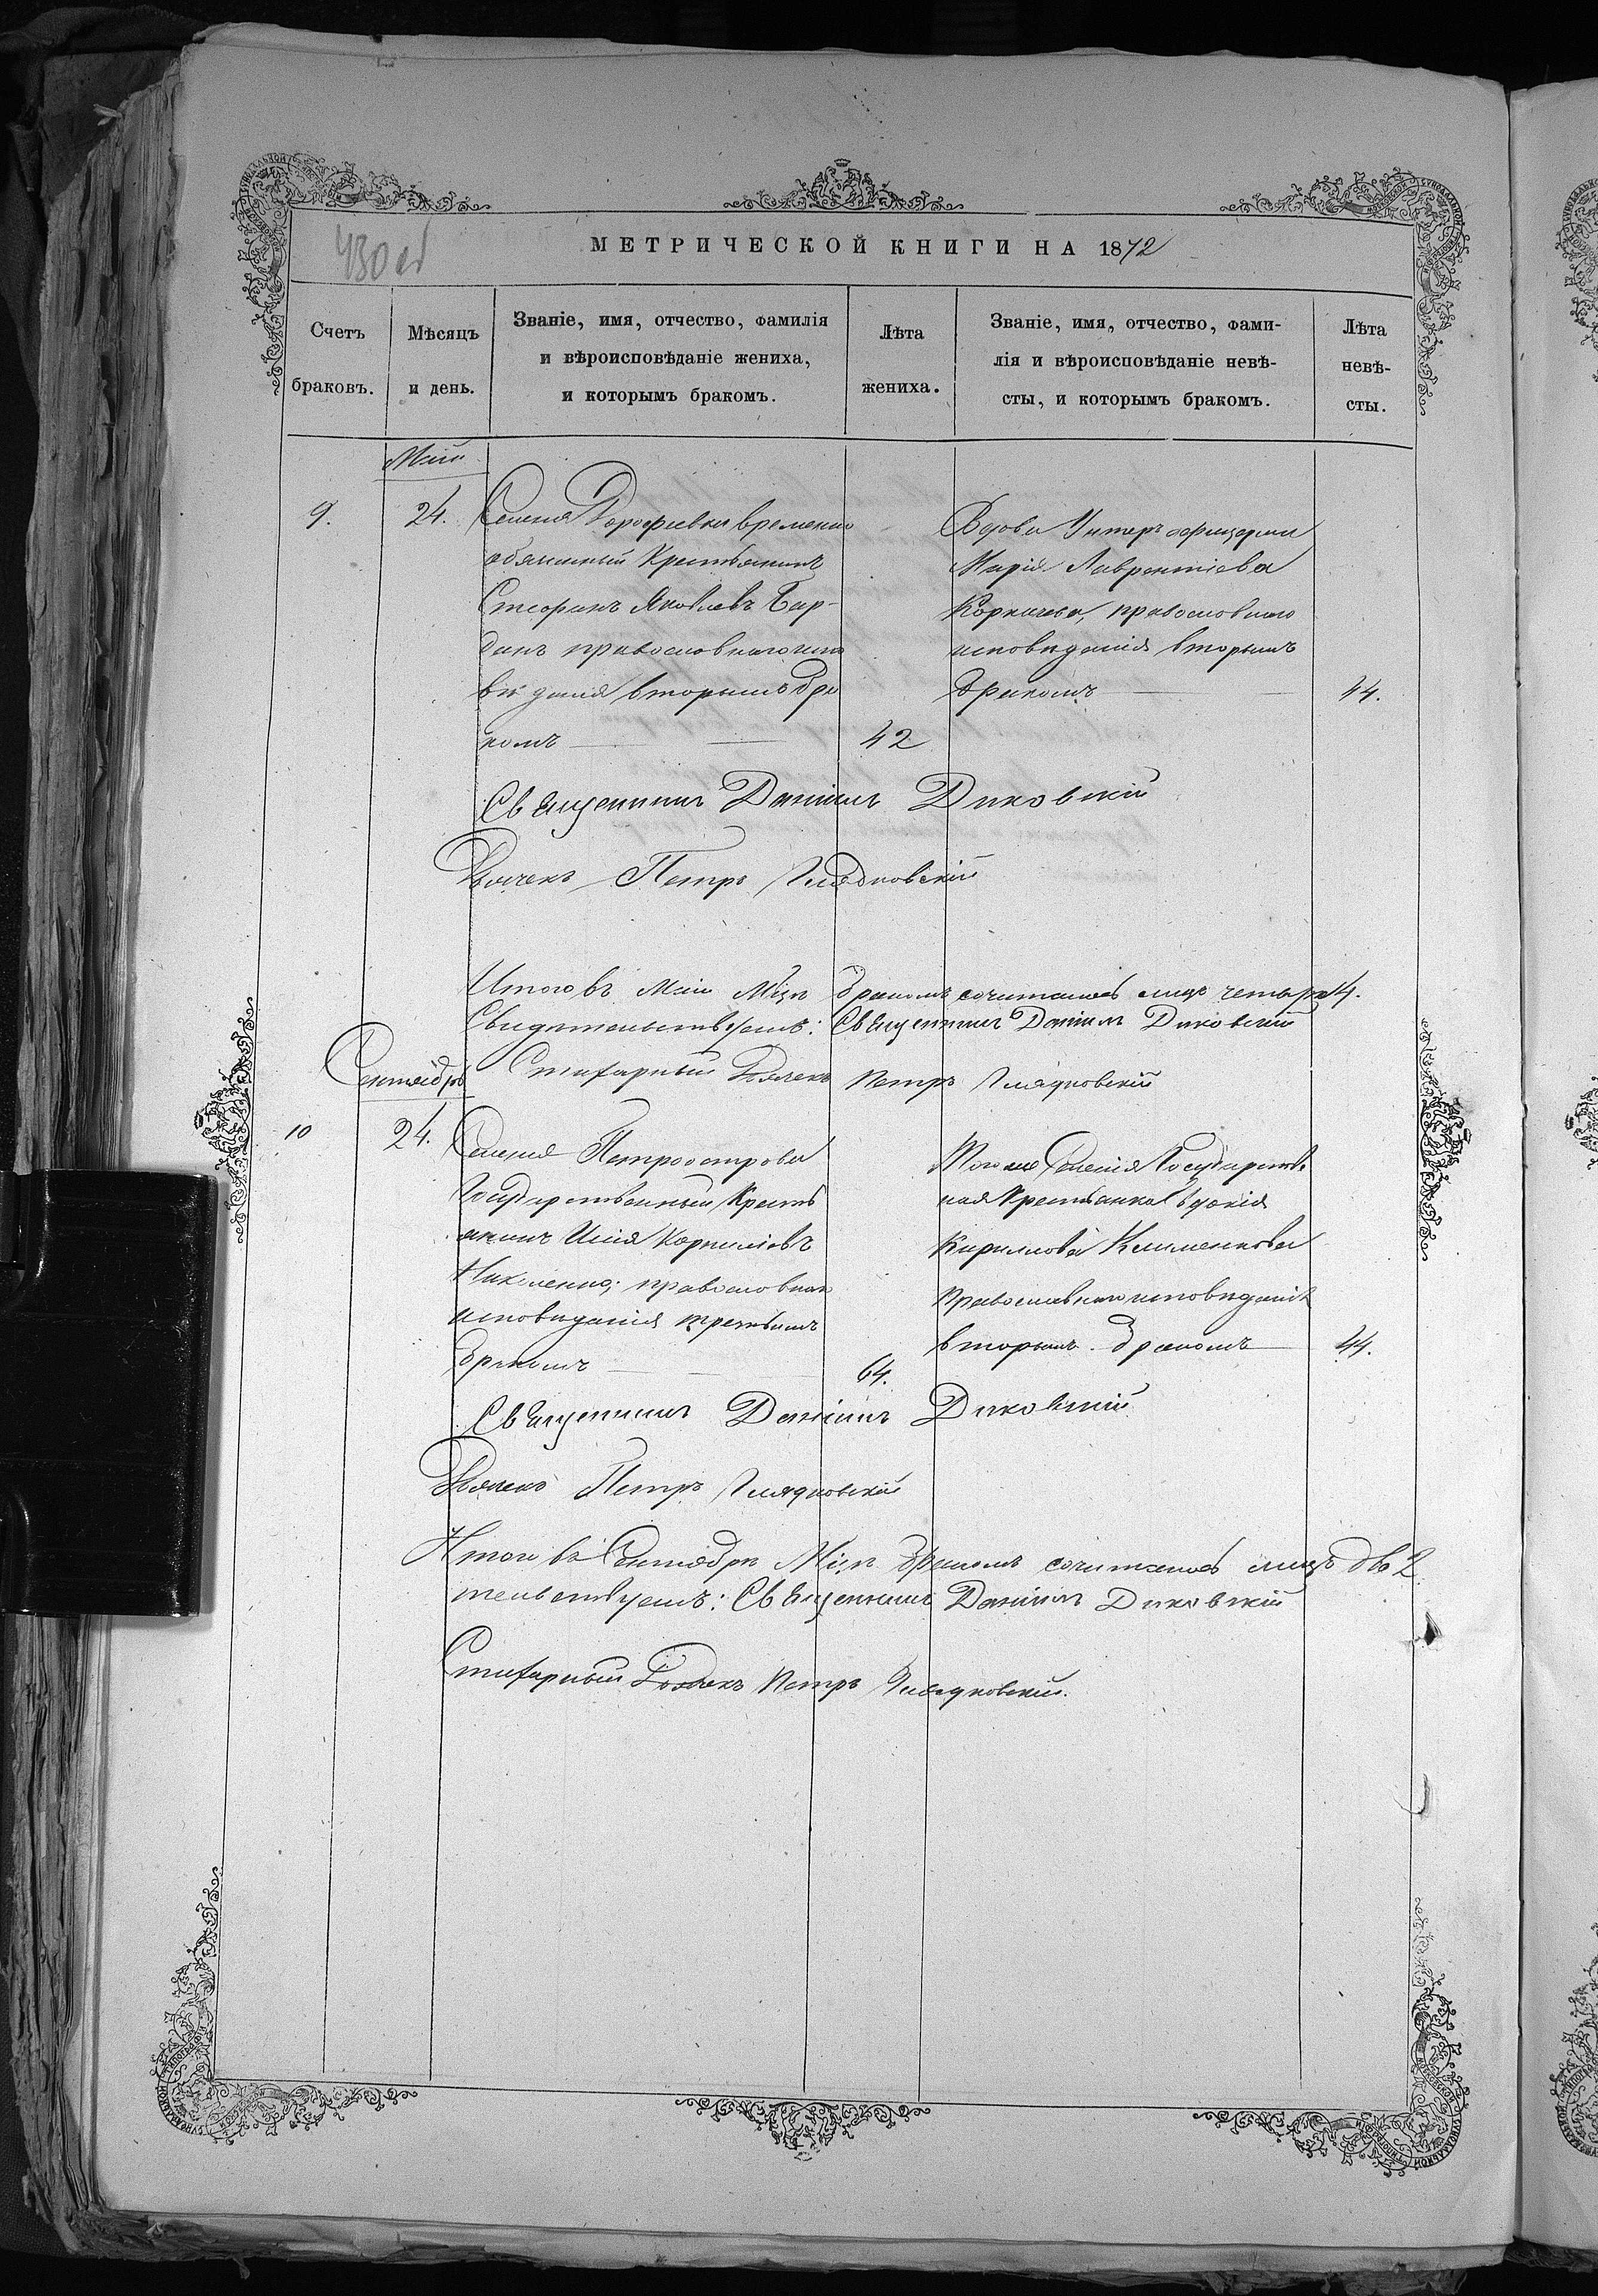 430 об
МЕТРИЧЕСКОЙ КНИГИ НА 1872
Счетъ браковъ.
Мѣсяцъ и день.
Званіе, имя, отчество, фамилія
и вѣроисповѣданіе жениха,
и которымъ бракомъ.
Лѣта жениха.
Званіе, имя, отчество, фами-
лія и вѣроисповѣданіе невѣ-
сты, и которымъ бракомъ.
Лѣта невѣ-
сты.
Маій
9.
24.
Селенія Дорофѣевки временно
обязанный Крестьянинъ
Стефанъ Яковлевъ Бар-
данъ православнаго испо
вѣданія вторымъ бра
комъ
42
Вдова Унтеръ офицерша
Марія Лаврентіева
православнаго
исповѣданія вторымъ
бракомъ
44.
Священникъ Даніилъ Диковскій
Дьячекъ Петръ Глядковскій
Итого въ Маіи М҃цѣ бракомъ сочиталось лицъ четыре 4.
Свидѣтельствуемъ: Священникъ Даніилъ Диковскій
Стихарный Дьячекъ Петръ Глядковскій
Сентябрь
10
24.
Селенія Петроострова
Государственный Кресть
янинъ Илія Корниліевъ
православнаго
исповѣданія третьимъ
бракомъ
64.
Тогоже Селенія Государстве
ная Крестьянка Евдокія
Кирилова Клименкова
Православнаго исповѣданія
вторымъ бракомъ
44.
Священникъ Даніилъ Диковскій
Дьячекъ Петръ Глядковскій
Итого въ Сентябрѣ М҃цѣ бракомъ сочиталось лицъ два 2
тельствуемъ: Священникъ Даніилъ Диковскій
Стихарный Дьячекъ Петръ Глядковскій.